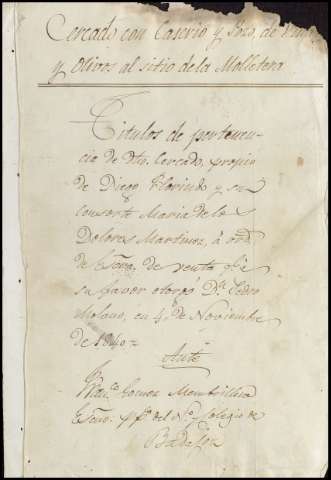 Cercado con Caserio y Pozo, de Viña
y Olivos al sitio de la Molletera
Titulos de pertenen-
cia de dho. Cercado, propio
de Diego Florindo y su
consorte Maria de los
Dolores Martinez, á
de Escra. de venta qe. á
su favor otorgó Dn. Pedro
Molano, en 4 de Noviembre
de 1840=
Ante
Franco. Gomez Membrillera
Escno. ppco. del No. Colegio de
Badajoz